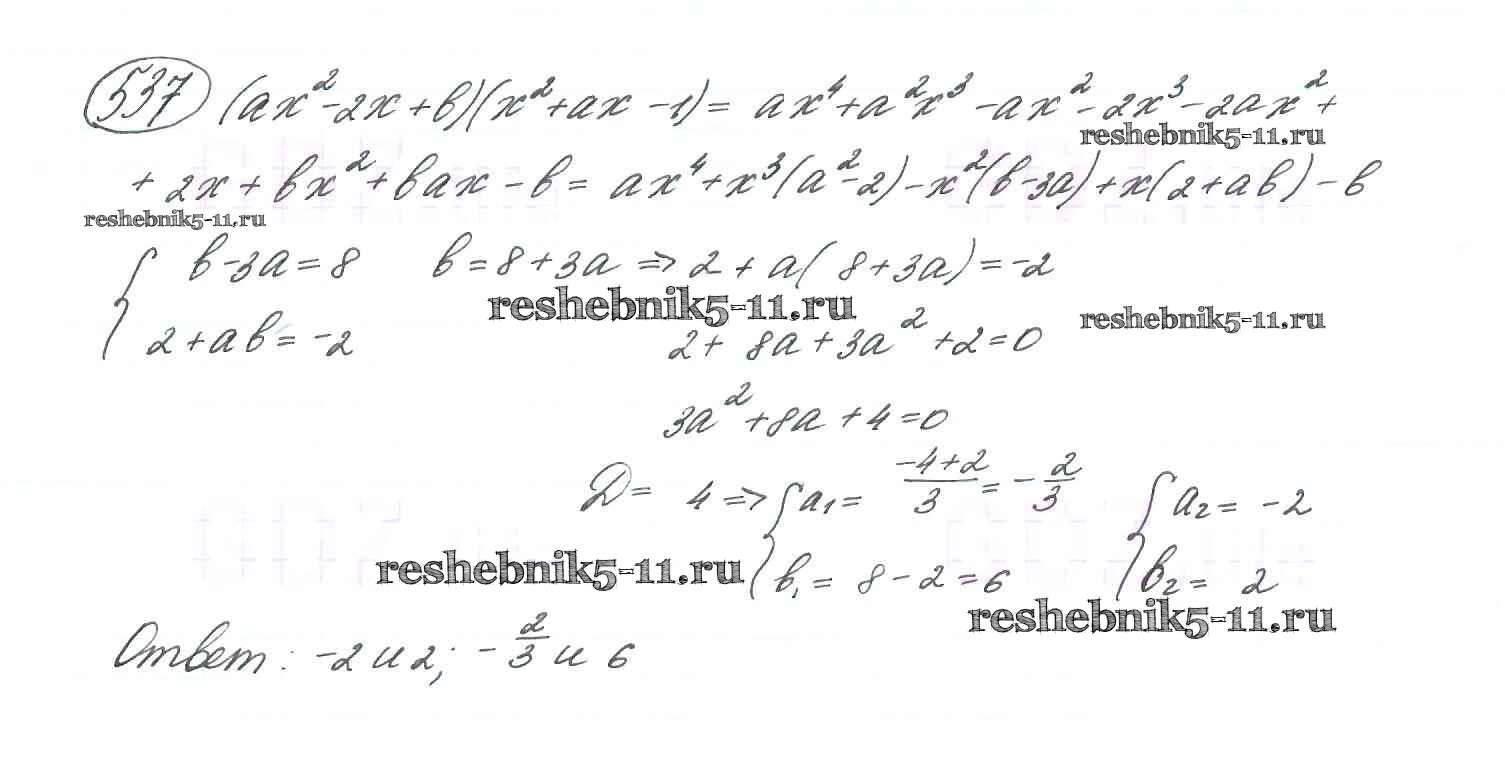 537 (ax²-2x+b)(x²+ax-1)= ax⁴+a²x³-ax²-2x³-2ax²+
reshebnik5-11.ru
+2x+bx²+bax-b= ax⁴+x³(a²-2)-x²(b-3a)+x(2+ab)-b
reshebnik5-11.ru
b-3a=8 b=8+3a ⇒ 2+a(8+3a)=-2
reshebnik5-11.ru
reshebnik5-11.ru
2+ab=-2 2+8a+3a²+2=0
3a²+8a+4=0
D= 4 ⇒ { a₁= (-4+2)/3 = -2/3 { a₂= -2
reshebnik5-11.ru
b₁= 8-2=6 b₂= 2
reshebnik5-11.ru
Ответ: -2 и 2; -2/3 и 6